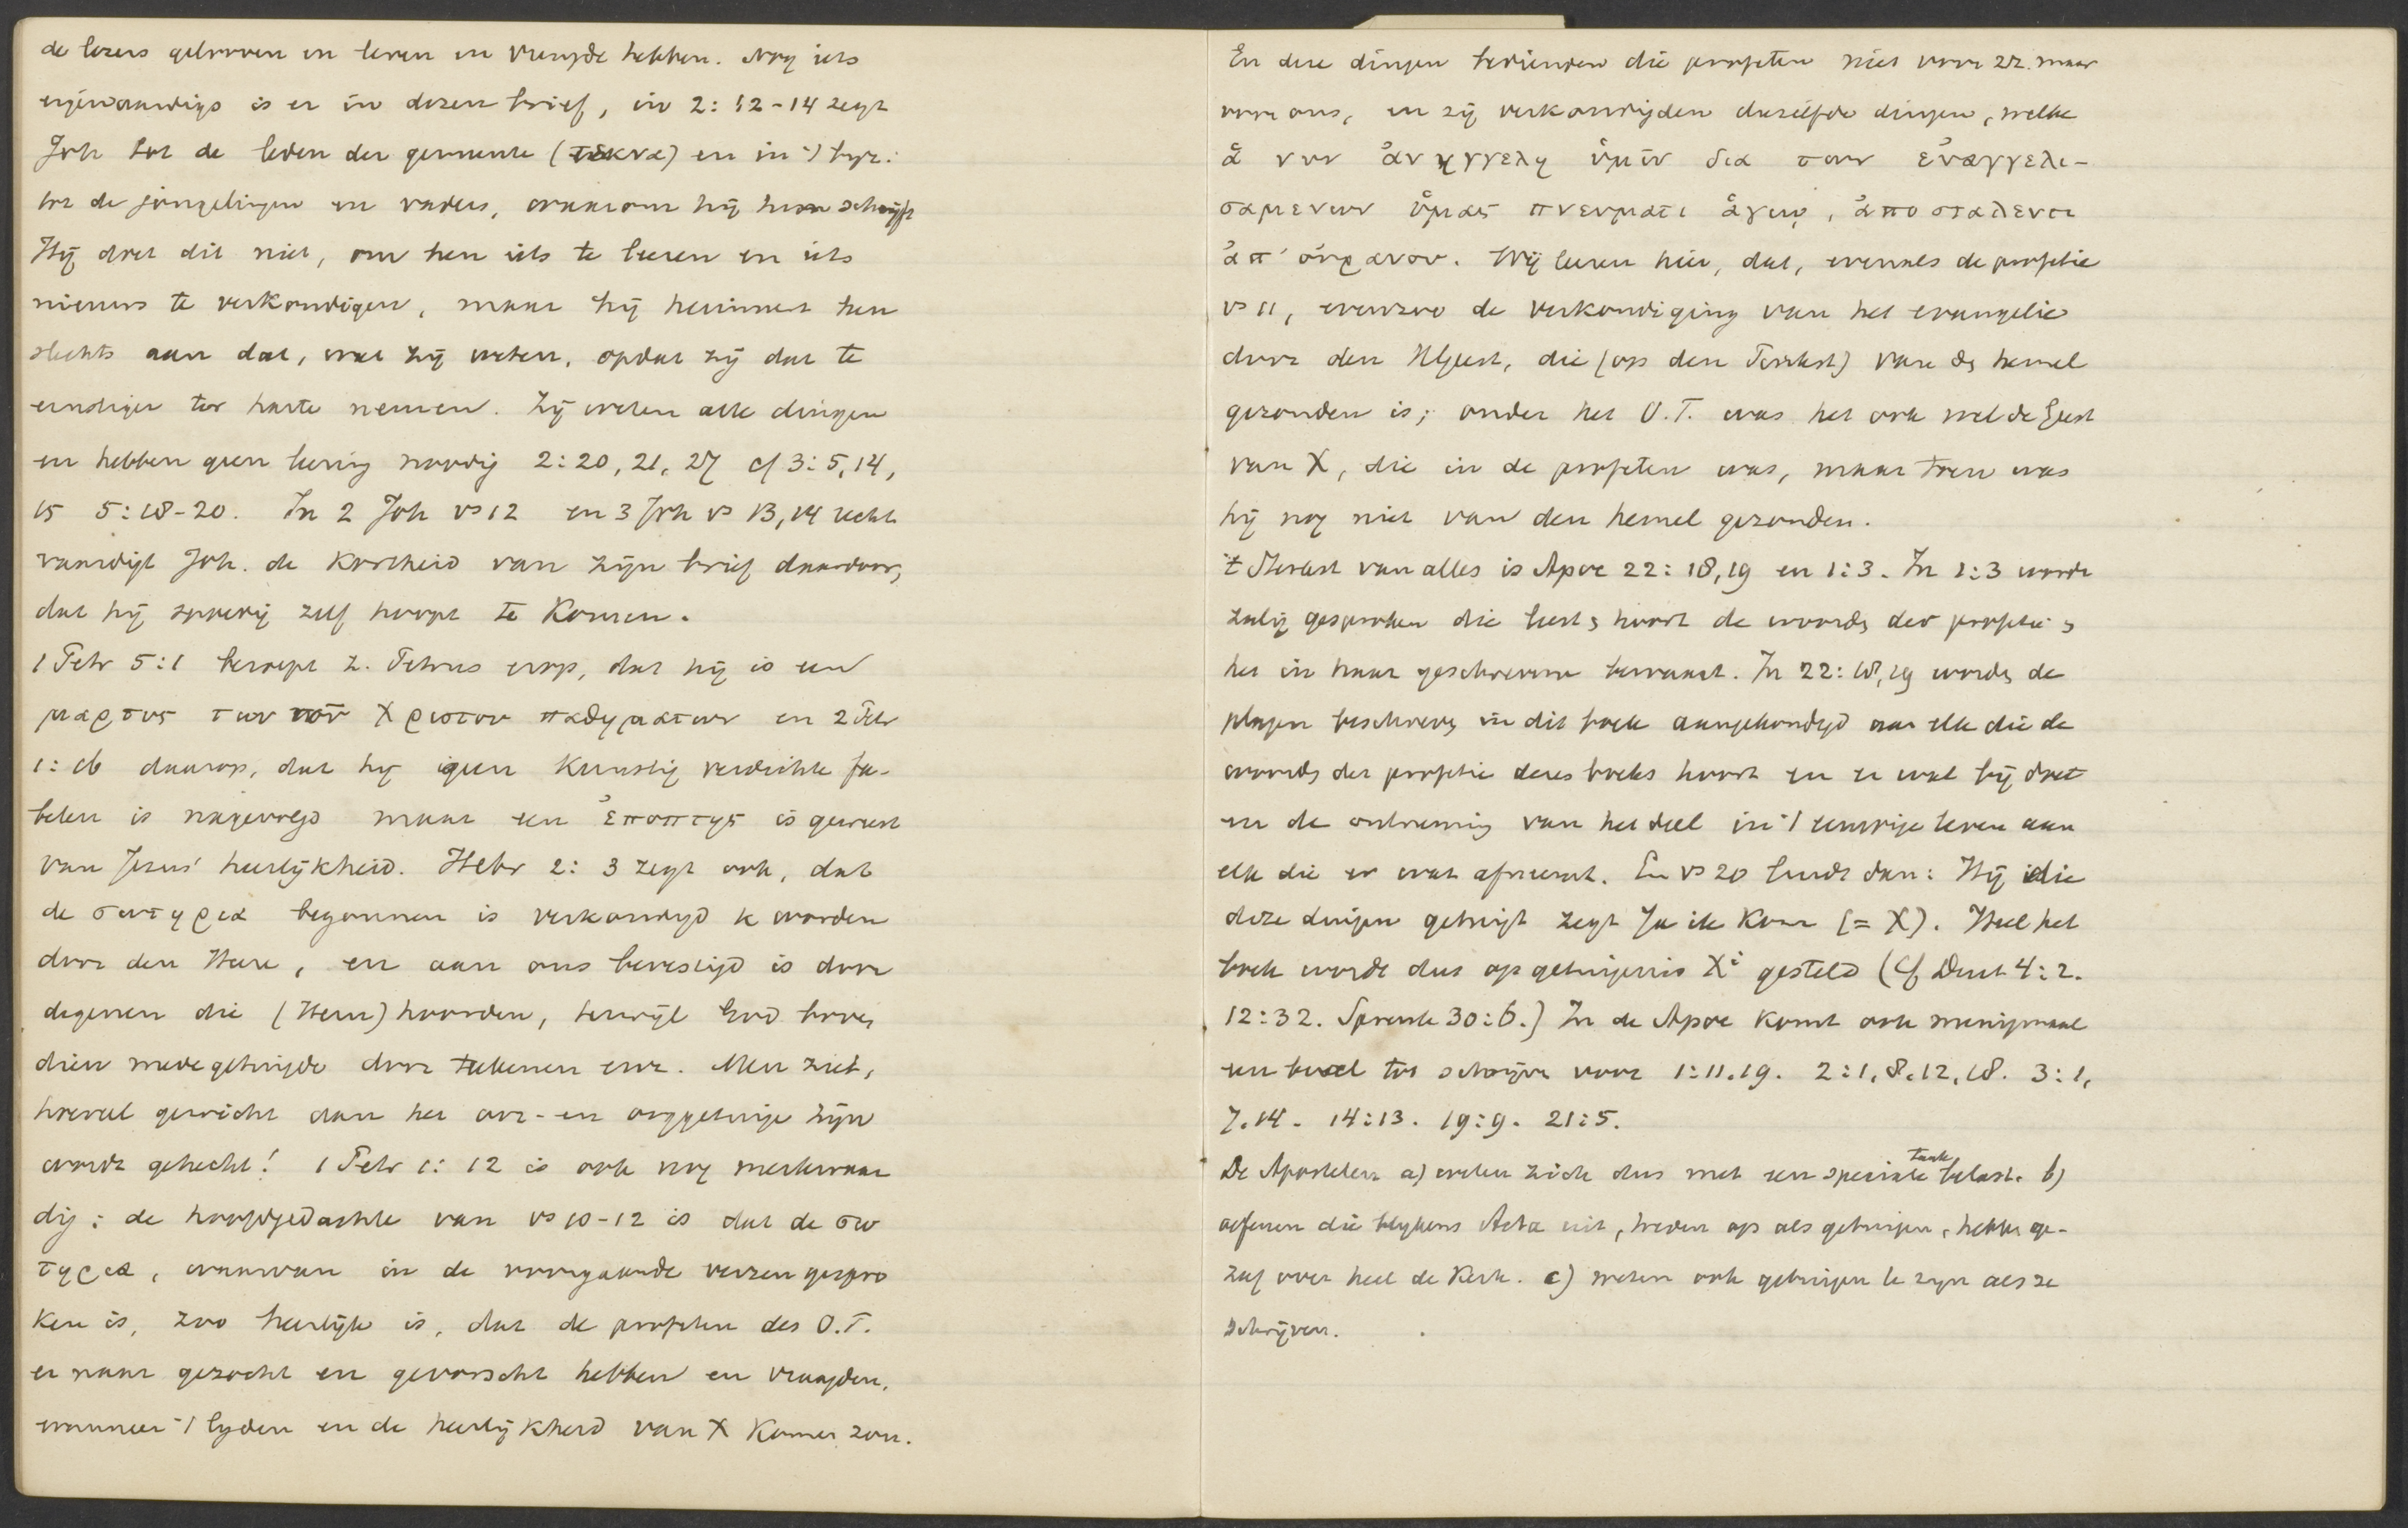 de lezers gelooven en leven en vreugde hebben. Nog iets
eigenaardigs is er in dezen brief, in 2: 12-14 zegt
Joh tot de leden der gemeente (τεκνα) en in 't byz:
tot de jongelingen en vaders, waarom hij hun schrijft
Hij doet dit niet, om hen iets te leeren en iets
nieuws te verkondigen, maar hij herinnert hen
slechts aan dat, wat zij weten, opdat zij dat te
ernstiger ter harte nemen. Zij weten alle dingen
en hebben geen leering noodig 2: 20, 21, 27 cf 3: 5, 14,
15 5: 18-20. In 2 Joh vs 12 en 3 Joh vs 13, 14 recht
vaardigt Joh. de Kortheid van zijn brief daardoor,
dat hij spoedig zelf hoopt te Komen.
1 Petr 5:1 beroept z. Petrus erop, dat hij is een
μαρτυς των του Χριστου παθηματων en 2 Petr
1: 16 daarop, dat hij geen Kunstig verdichte fa-
belen is nagevolgd maar een ἐποπτης is geweest
van Jezus' heerlijkheid. Hebr 2: 3 zegt ook, dat
de σωτηρια begonnen is verkondigd te worden
door den Heere, en aan ons bevestigd is door
degenen die (Hem) hoorden, terwijl God boven
dien medegetuigde door teekenen enz. Men ziet,
hoeveel gewicht aan het oor- en ooggetuige zijn
wordt gehecht! 1 Petr 1: 12 is ook nog merkwaar
dig: de hoofdgedachte van vs 10-12 is dat de σω
τηρια, waarvan in de voorgaande verzen gespro
Ken is, zoo heerlijk is, dat de profeten des O.T.
er naar gezocht en gevorscht hebben en vraagden,
wanneer 't lyden en de heerlijkheid van X Komen zou.
En deze dingen bedienden die profeten niet voor zz. maar
voor ons, en zij verkondigden dezelfde dingen, welke
ἁ νυν ἀνηγγελη ὑμῖν δια των εὐαγγελι-
σαμενων ὑμας πνευματι ἁγιῳ, ἀποσταλεντι
ἀπ' οὐρανου. Wij leeren hier, dat, evenals de profetie
vs 11, evenzoo de verkondiging van het evangelie
door den HGeest, die (op den Pinkst) van dn hemel
gezonden is; onder het O.T. was het ook wel de Geest
van X, die in de profeten was, maar toen was
hij nog niet van den hemel gezonden.
't Sterkst van alles is Apoc 22: 18, 19 en 1: 3. In 1: 3 wordt
zalig gesproken die leest en hoort de woorden der profetie en
het in haar geschrevene bewaart. In 22: 18, 19 worden de
plagen beschreven in dit boek aangekondigd aan elk die de
woorden der profetie dezes boeks hoort en er wat bij doet
en de ontneming van het deel in 't eeuwige leven aan
elk die er wat afneemt. En vs 20 luidt dan: Hij die
deze dingen getuigt zegt Ja ik Kom (= X). Heel het
boek wordt dus op getuigenis Xi gesteld (Cf Deut 4: 2.
12: 32. Spreuk 30: 6.) In de Apoc Komt ook menigmaal
een bevel tot schrijven voor 1: 11. 19. 2: 1, 8. 12, 18. 3: 1,
7. 14. 14: 13. 19: 9. 21: 5.
De Apostelen a) weten zich dus met een speciale taak belast. b)
oefenen die blykens Acta uit, treden op als getuigen, hebben ge-
zag over heel de Kerk. c) weten ook getuigen te zyn als ze
schrijven.